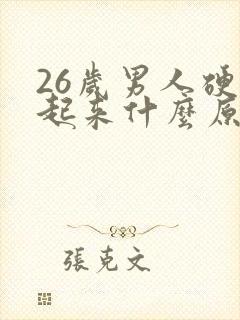 26歲男人硬
起来什麼原
張克文